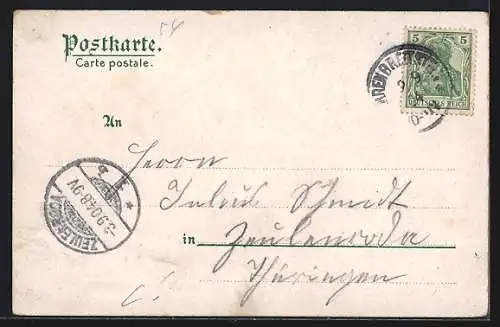 Postkarte.
Carte postale.
5 5
DEUTSCHES REICH
An
Herrn
Julius Schmidt
in Zeulenroda
Thüringen
ZEULENRODA
3.9.04.8-9V.